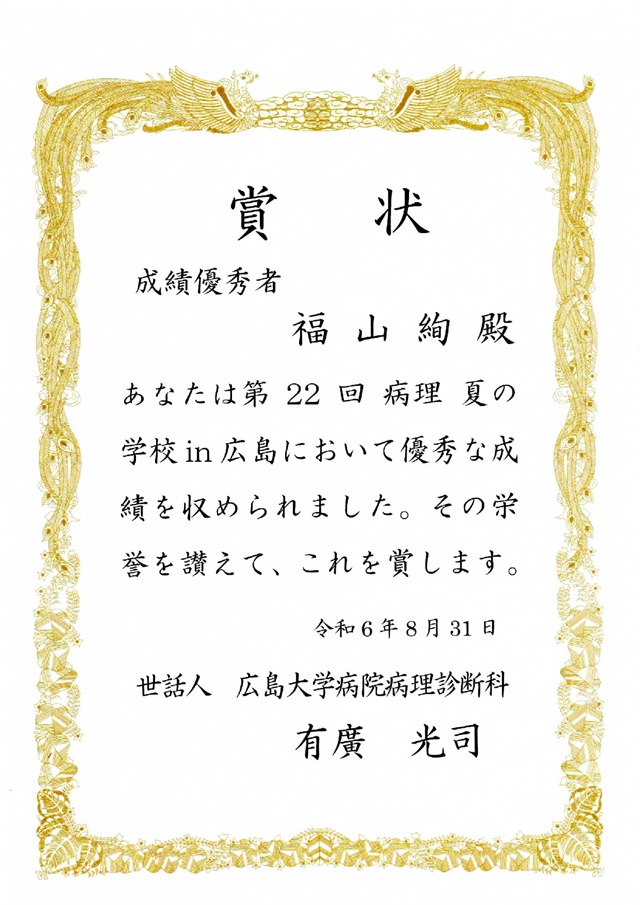 賞状
成績優秀者
福山絢殿
あなたは第 22 回 病理 夏の
学校 in 広島において優秀な成
績を収められました。その栄
誉を讃えて、これを賞します。
令和6年8月31日
世話人　広島大学病院病理診断科
有廣　光司